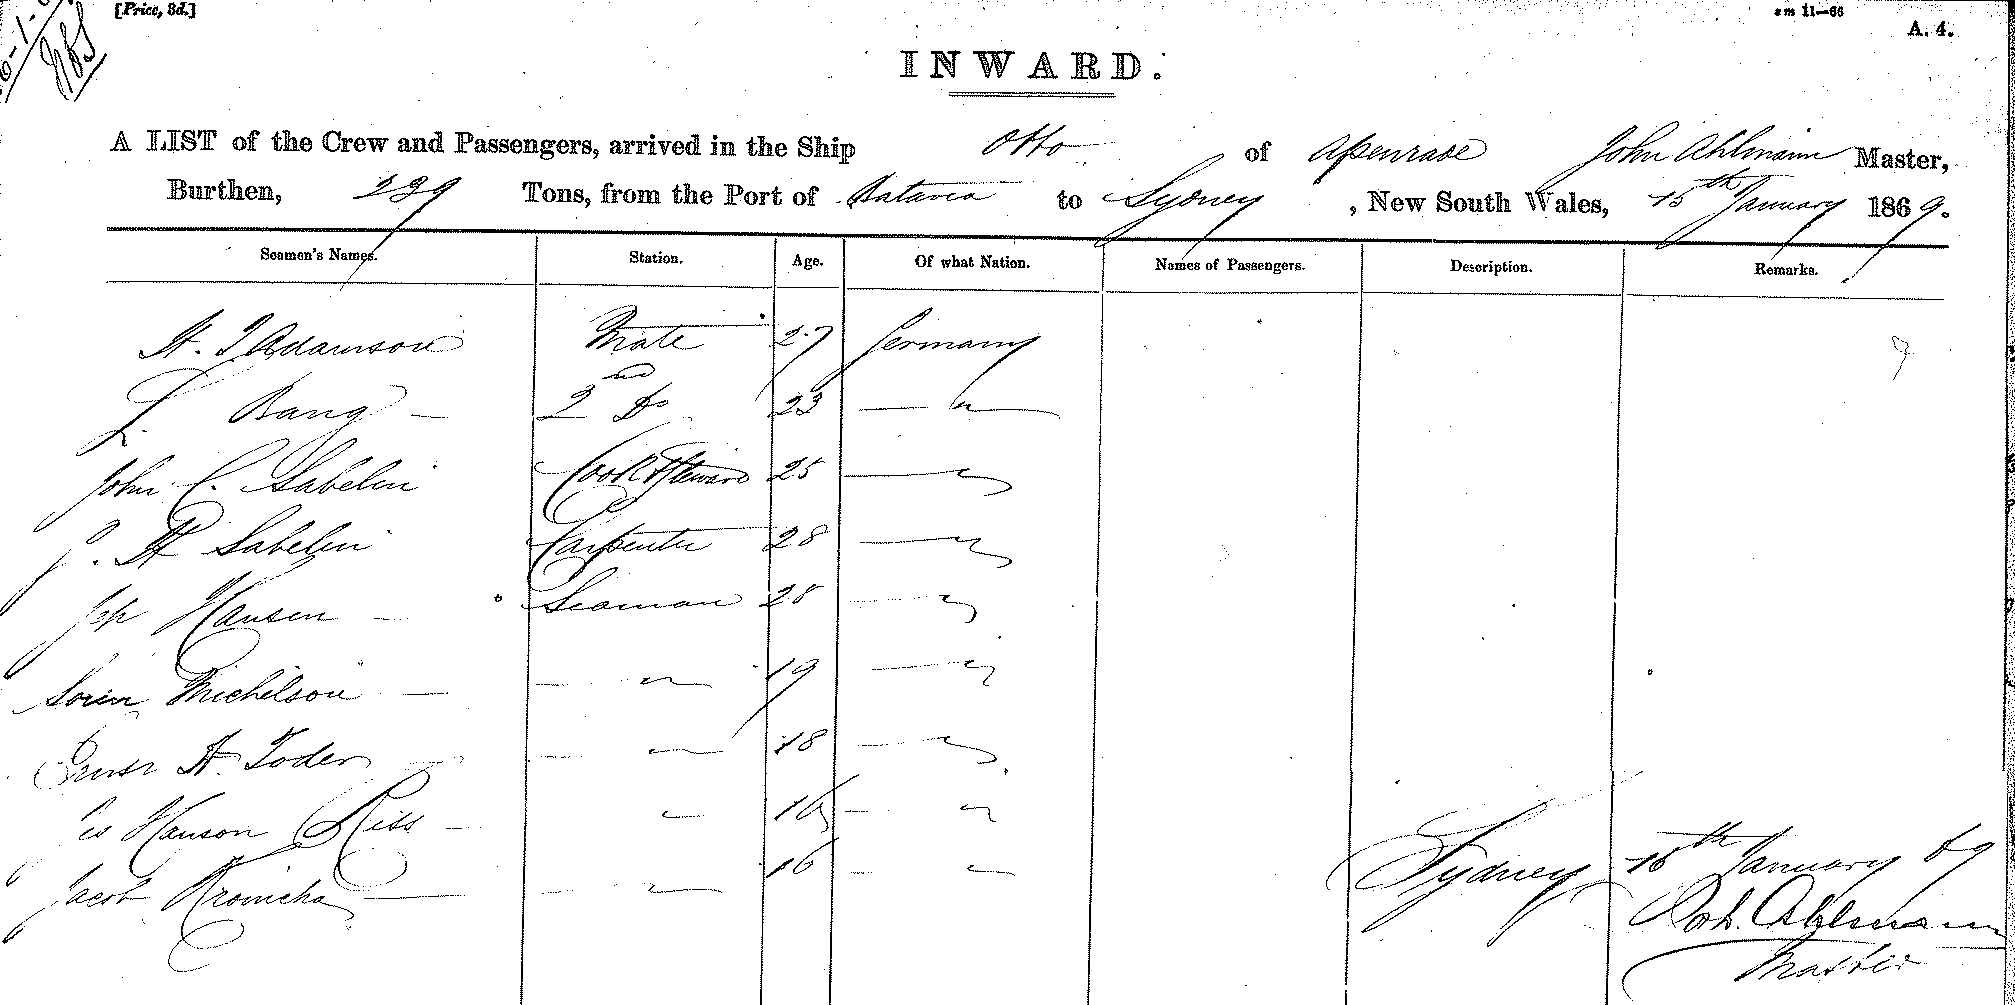 [Price, 3d.]
A. 4.
INWARD.
A LIST of the Crew and Passengers, arrived in the Ship Otto of Apenrade John Ahlmann Master,
Burthen, 229 Tons, from the Port of Batavia to Sydney, New South Wales, 15th January 1869.
Seamen's Names. Station. Age. Of what Nation. Names of Passengers. Description. Remarks.
H. J Adamson Mate 27 Germany
L. Bang — 2nd Do 23 — " —
John C. Sabelin Cook & Steward 25 — "
J. H Sabelin Carpenter 28 — "
Jep Hansen — Seaman 28 — "
Soren Michelson — — " — 19 — "
H. Toder — — " — 18 — "
Hanson Riss — " 16 — "
Jacob — — " — 16 — "
Sydney 15th January 69
Ahlmann
Master